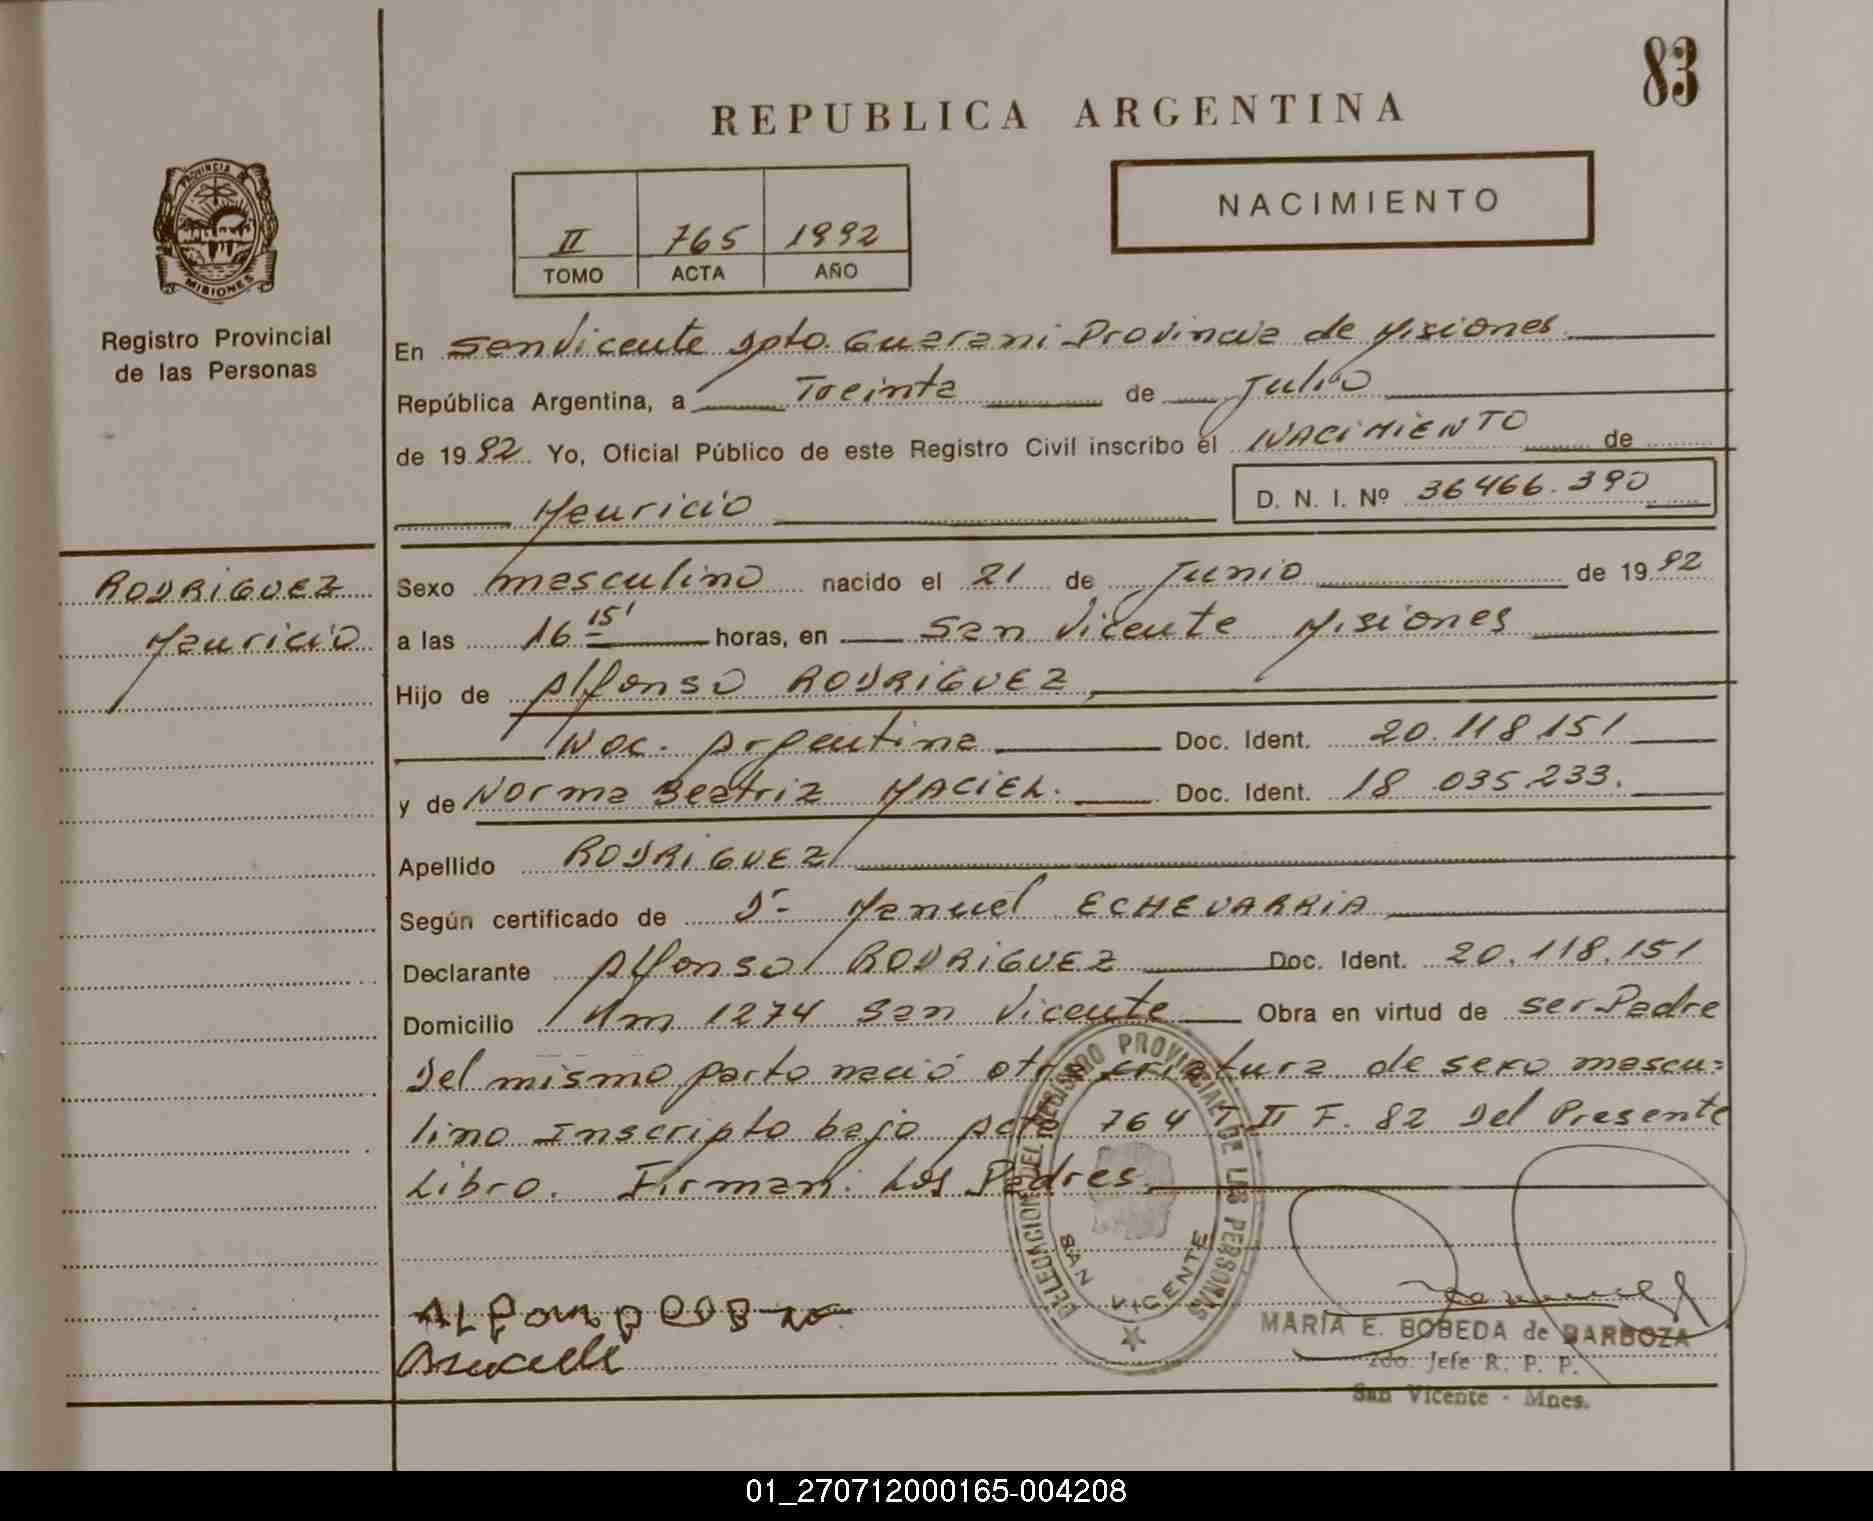 83
REPUBLICA ARGENTINA
PROVINCIA DE
MISIONES
NACIMIENTO
II 765 1992
TOMO ACTA AÑO
Registro Provincial
de las Personas
En San Vicente Dpto. Guarani Provincia de Misiones
República Argentina, a Treinta de Julio
de 1992 Yo, Oficial Público de este Registro Civil inscribo el NACIMIENTO de
Mauricio D. N. I. Nº 36466.390
RODRIGUEZ
Mauricio
Sexo masculino nacido el 21 de Junio de 1992
a las 16 15' horas, en San Vicente Misiones
Hijo de Alfonso RODRIGUEZ
Nac. Argentina Doc. Ident. 20.118.151
y de Norma Beatriz MACIEL. Doc. Ident. 18.035.233.
Apellido RODRIGUEZ
Según certificado de Dr. Manuel ECHEVARRIA
Declarante Alfonso RODRIGUEZ Doc. Ident. 20.118.151
Domicilio Km 1274 San Vicente Obra en virtud de ser Padre
Del mismo parto nació otra criatura de sexo mascu=
lino Inscripto bajo Acta 764 T II F. 82 Del Presente
Libro. Firman: Los Padres.
DELEGACION DEL REGISTRO PROVINCIAL DE LAS PERSONAS
SAN VICENTE
MARIA E. BOBEDA de BARBOZA
2do. Jefe R. P. P.
San Vicente - Mnes.
01_270712000165-004208